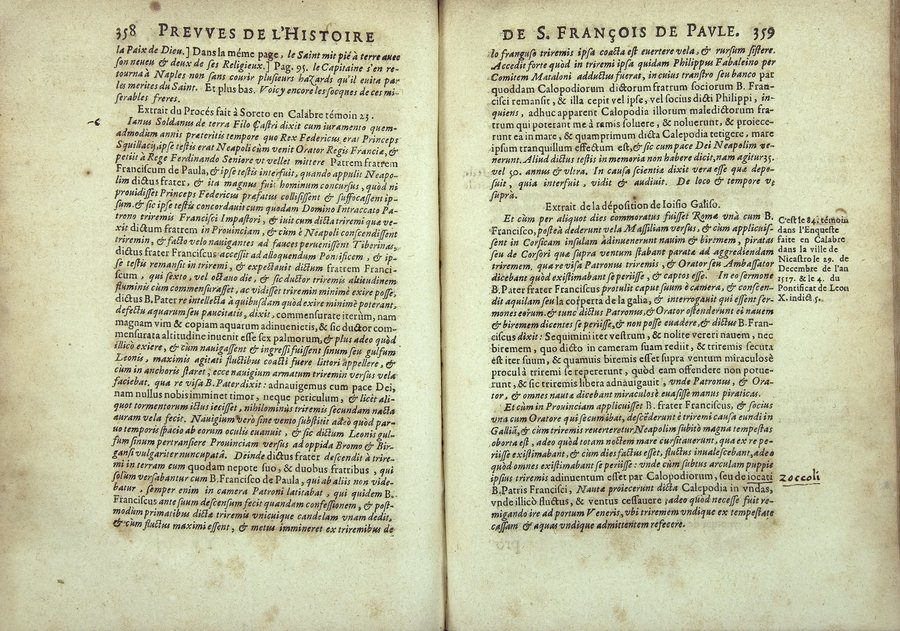 358 PREVVES DE L'HISTOIRE
la Paix de Dieu.] Dans la méme page, le Saint mit pié à terre auec
son neueu & deux de ses Religieux.] Pag. 95. le Capitaine s'en re-
tourna à Naples non sans courir plusieurs hazards qu'il euita par
les merites du Saint. Et plus bas. Voicy encore les socques de ces mi-
serables freres.
Extrait du Procés fait à Soreto en Calabre témoin 23.
Ianus Soldanus de terra Filo Castri dixit cum iuramento quem-
admodum annis præteritis tempore quo Rex Federicus erat Princeps
Squillacij, ipse testis erat Neapoli cùm venit Orator Regis Franciæ, &
petiit à Rege Ferdinando Seniore vt vellet mittere Patrem fratrem
Franciscum de Paula, & ipse testis interfuit, quando appulis Neapo-
lim dictus frater, & ita magnus fuit hominum concursus, quòd ni
prouidisset Princeps Federicus præfatus collisissent & suffocassent ip-
sum. & sic ipse testis concordauit cum quodam Domino Intraccato Pa-
trono triremis Francisci Impastori, & iuit cum dicta triremi quæ ve-
xit dictum fratrem in Prouinciam, & cùm è Neapoli conscendissent
triremin, & facto velo nauigantes ad fauces peruenissent Tiberinas,
dictus frater Franciscus accessit ad alloquendum Pontificem, & ip-
se testis remansit in triremi, & expectauit dictum fratrem Franci-
scum, qui sexto, vel octauo die, & sic ductor triremis altitudinem
fluminis cùm commensurasset, ac vidisset triremin minimè exire posse,
dictus B. Pater re intellecta à quibusdam quòd exire minimè poterant,
defectu aquarum seu paucitatis, dixit. commensurate iterum, nam
magnam vim & copiam aquarum adinuenietis, & sic ductor com-
mensurata altitudine inuenit esse sex palmorum, & plus adeo quòd
illicò exiere, & cùm nauigassent & ingressi fuissent sinum seu gulfum
Leonis, maximis agitati fluctibus coacti fuere littori appellere, &
cùm in anchoris staret; ecce nauigium armatum triremin versus vela
faciebat. qua re visa B. Pater dixit: adnauigemus cum pace Dei,
nam nullus nobis imminet timor, neque periculum, & licèt ali-
quot tormentorum ictus iecisset, nihilominùs triremis secundam nacta
auram vela fecit. Nauigium verò sine vento substitit adeò quòd par-
uo temporis spacio ab eorum oculis euanuit, & sic dictum Leonis gul-
fum sinum pertransiere Prouinciam versus ad oppida Bromo & Bir-
gansi vulgariter nuncupata. Deinde dictus frater descendit à trire-
mi in terram cum quodam nepote suo, & duobus fratribus, qui
solùm versabantur cum B. Francisco de Paula, qui ab aliis non vide-
batur, semper enim in camera Patroni latitabat, qui quidem B.
Franciscus ante suum descensum fecit quandam confessionem, & post-
modum primatibus dicta triremis vnicuique candelam vnam dedit,
& cùm fluctus maximi essent, & metus immineret ex triremibus de
DE S. FRANÇOIS DE PAVLE. 359
lo franguso triremis ipsa coacta est euertere vela, & rursum sistere.
Accedit forte quòd in triremi ipsa quidam Philippus Fabaleino per
Comitem Mataloni adductus fuerat, in cuius transtro seu banco par
quoddam Calopodiorum dictorum fratrum sociorum B. Fran-
cisci remansit, & illa cepit vel ipse, vel socius dicti Philippi, in-
quiens, adhuc apparent Calopodia illorum maledictorum fra-
trum qui poterant me à ramis soluere, & noluerunt, & proiece-
runt ea in mare, & quamprimum dicta Calepodia tetigere, mare
ipsum tranquillum effectum est, & sic cum pace Dei Neapolim ve-
nerunt. Aliud dictus testis in memoria non habere dicit, nam agitur 35.
vel 50. annus & vltra. In causa scientiæ dixit vera esse quæ depo-
suit, quia interfuit, vidit & audiuit. De loco & tempore vt
suprà.
Extrait de la déposition de Ioisio Galiso.
Et cùm per aliquot dies commoratus fuisset Romæ vnà cum B.
Francisco, posteà dederunt vela Massiliam versus, & cùm applicuis-
sent in Corsicam insulam adinuenerunt nauim & biremem, piratas
seu de Corsori quæ supra ventum stabant paratæ ad aggrediendam
triremem, qua re visa Patronus triremis, & Orator seu Ambassator
dicebant quòd existimabant se periisse, & captos esse. In eo sermone
B. Pater frater Franciscus protulit caput suum è camera, & conscen-
dit aquilam seu la coperta de la galia, & interrogauit qui essent ser-
mones eorum. & tunc dictus Patronus, & Orator ostenderunt ei nauem
& biremem dicentes se periisse, & non posse euadere, & dictus B. Fran-
ciscus dixit: Sequimini iter vestrum, & nolite vereri nauem, nec
biremem, quo dicto in cameram suam rediit, & triremis secuta
est iter suum, & quamuis biremis esset supra ventum miraculosè
procul à triremi se repererunt, quòd eam offendere non potue-
runt, & sic triremis libera adnauigauit, vnde Patronus, & Ora-
tor, & omnes nautæ dicebant miraculosè euasisse manus piraticas.
Et cùm in Prouinciam applicuisset B. frater Franciscus, & socius
vna cum Oratore qui secum ibat, descēderunt è triremi causa eundi in
Galliā, & cùm triremis reuerteretur Neapolim subitò magna tempestas
oborta est, adeo quòd totam noctem mare cursitauerunt, qua ex re pe-
riisse existimabant, & cùm dies factus esset, fluctus inualescebant, adeo
quòd omnes existimabant se periisse: vnde cùm subtus arculam puppie
ipsius triremis adinuentum esset par Calopodiorum, seu de iocati
B. Patris Francisci, Nautæ proiecerunt dicta Calepodia in vndas,
vnde illicò fluctus, & ventus cessauere; adeo quòd necesse fuit re-
migando ire ad portum Veneris, vbi triremem vndique ex tempestate
cassam & aquas vndique admittentem refecere.
C'est le 84. témoin
dans l'Enqueste
faite en Calabre
dans la ville de
Nicastro le 29. de
Decembre de l'an
1517. & le 4. du
Pontificat de Leon
X. indict 5.
zoccoli